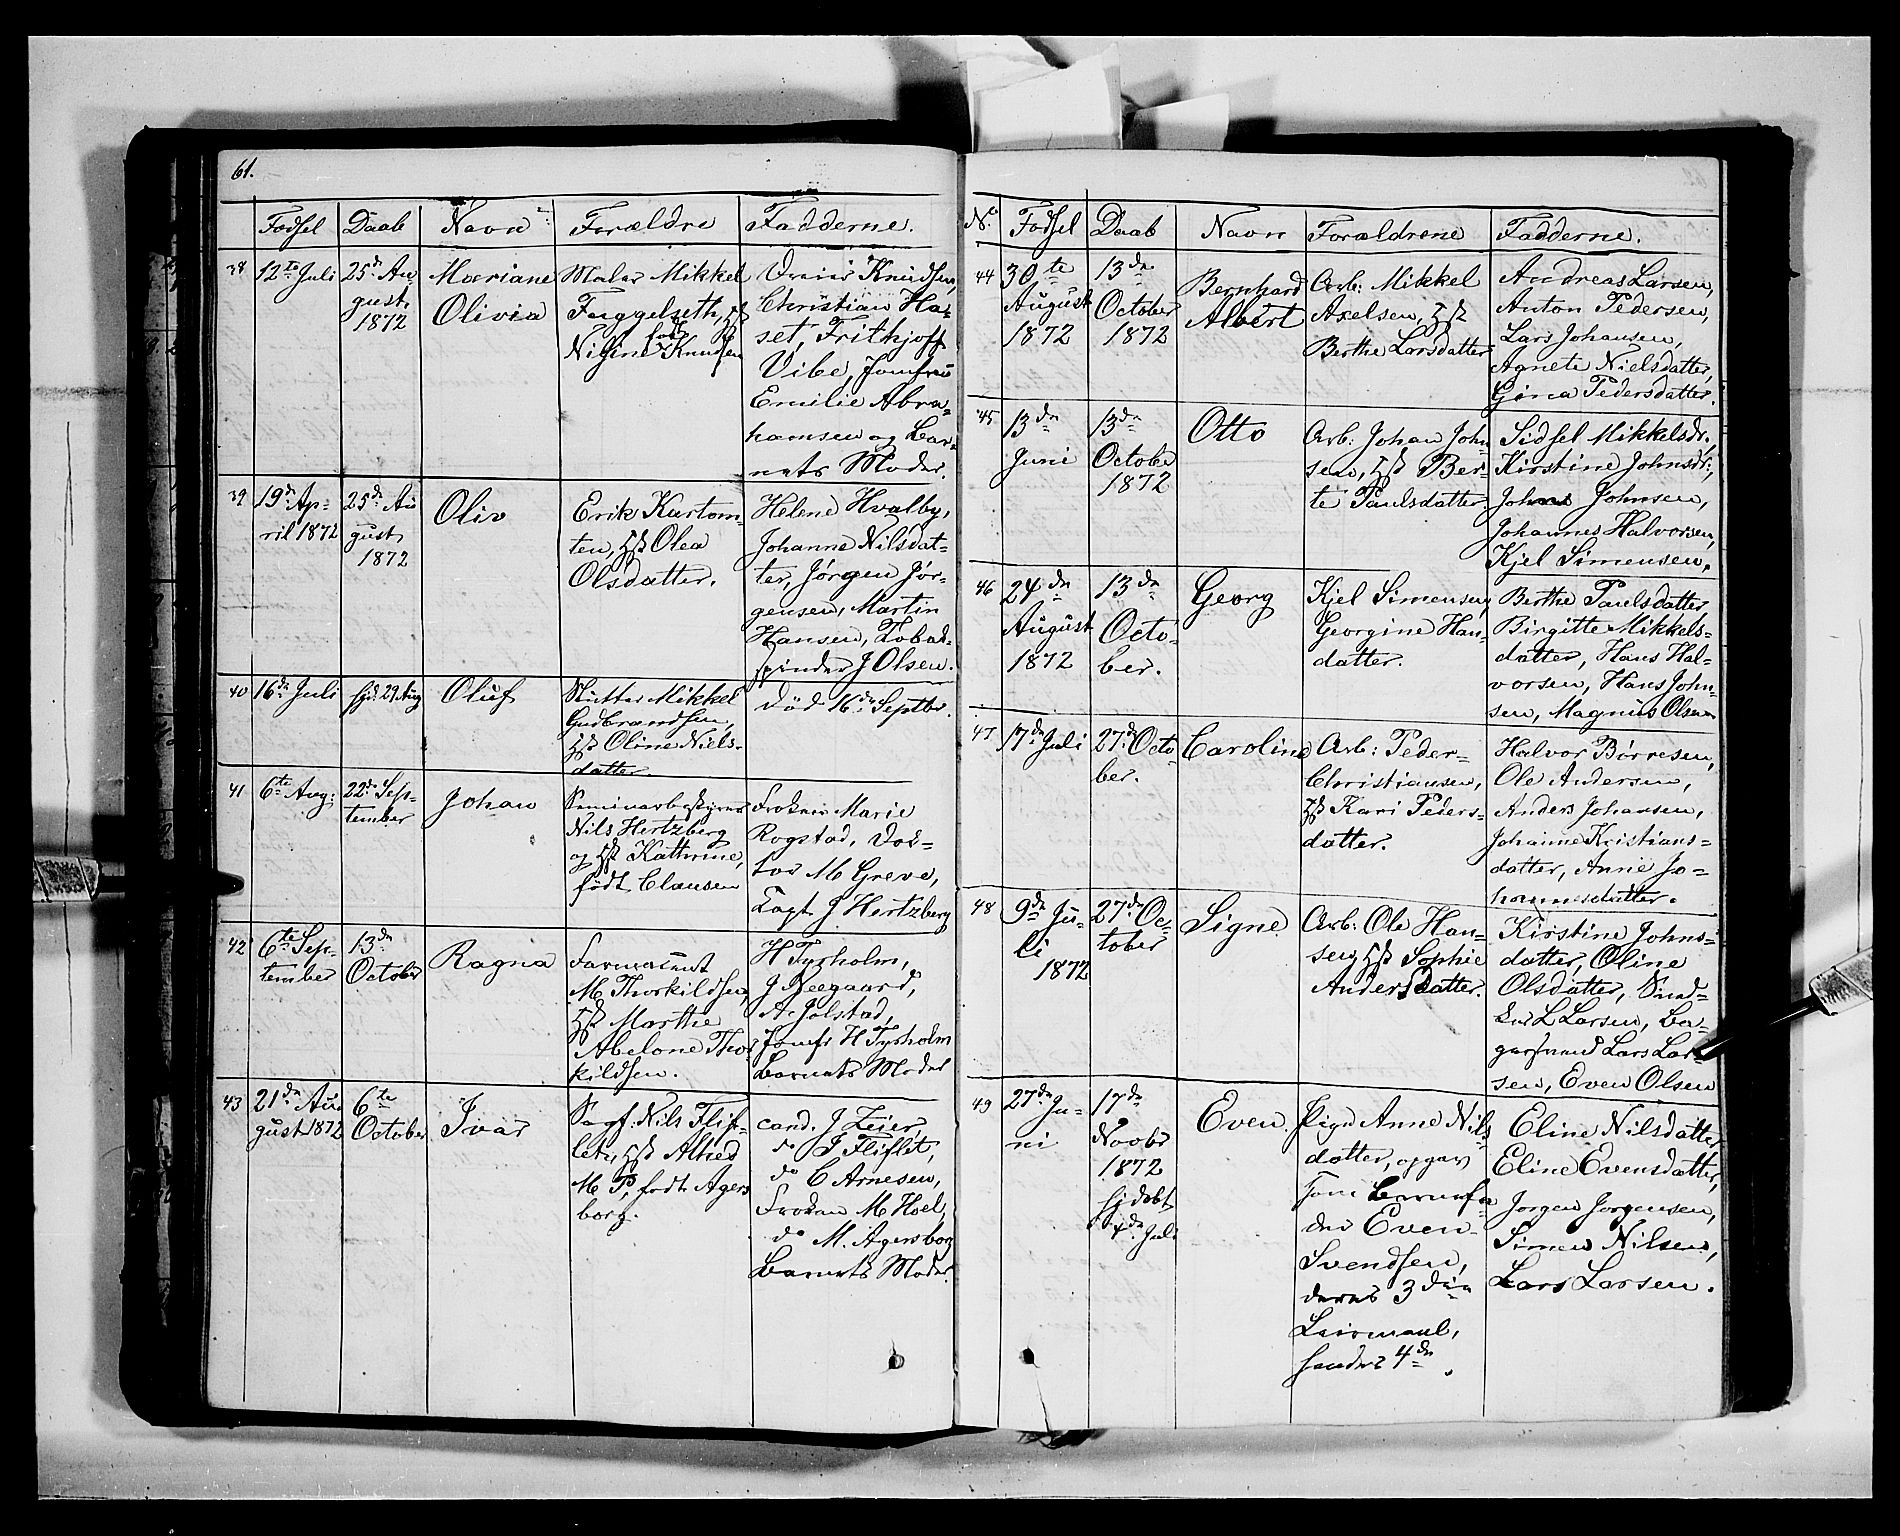 61.
Fødsel Daab Navn Forældre Fadderne.
38 12te Juli 25de Au-
gust
1872
Mariane
Olivia
Maler Mikkel
Fuggelseth, H
født
Knudsen
Knudsen,
Christian Ha-
set, Frithjoff
Vibe, Jomfru
Emilie Abra-
hamsen og Bar-
nets Moder.
39 19de Ap-
ril 1872
25de Au
gust
1872
Oliv
Erik Kartom-
ten, H Olea
Olsdatter.
Helene Hvalby,
Johanne Nilsdat-
ter, Jørgen Jør-
gensen, Martin
Hansen, Tobak-
spinder J Olsen.
40 16de Juli hjd. 29 Aug Oluf
Mikkel
Gudbrandsen,
H Oline Niels-
datter
Død 16de Septbr.
41 6te Aug: 22de Sep-
tember
Johan
Seminarbestyrer
Nils Hertzberg
og H Kathrine,
født Clausen
Frøken Marie
Rogstad, Dok-
tor M Greve,
Capt. J Hertzberg
42 6te Sep-
tember
13de
October
Ragna
Farmaceut
M Thorkildsen,
H Marthe
Abelone Thor
kildsen.
H Tysholm,
J Neegaard,
A. Jölstad,
Jomfr H Tysholm
Barnets Moder
43 21de Au
gust 1872
6te
October
Ivar
Sagf: Nils Flif-
let, H
M P, født Agers
borg.
cand. J Zeier,
do J Fliflet,
do C Arnesen,
Frøken M Hoel,
do M. Agersborg
Barnets Moder.
No Fødsel Daab Navn Forældrene Fadderne.
44 30te
August
1872
13de
October
1872
Bernhard
Albert
Arb: Mikkel
Axelsen, H
Berthe Larsdatter
Andreas Larsen,
Anton Pedersen,
Lars Johansen,
Agnete Nielsdatter,
Gina Pedersdatter.
45 13de
Juni
13de
October
1872
Otto
Arb: Johan John
sen, H Ber-
te Paulsdatter
Sidsel Mikkelsdr.,
Kirstine Johnsdr:,
Johnsen,
Johannes Halvorsen,
Kjel Simensen.
46 24de
August
1872
13de
Octo-
ber.
Georg
Kjel Simensen,
Georgine Han-
datter.
Berthe Paulsdatter
Birgitte Mikkels-
datter, Hans Hal-
vorsen, Hans John-
sen, Magnus Olsen
47 17de Juli 27de Octo
ber.
Caroline
Arb: Peder-
Christiansen,
H Kari Peders-
datter.
Halvor Børresen,
Ole Andersen,
Anders Johansen,
Johanne Kristians-
datter, Anne Jo-
hannesdatter.
48 9de Ju-
li
1872
27de Oc-
tober
Signe
Arb: Ole Han-
sen, H Sophie
Andersdatter.
Kirstine Johns-
datter, Oline
Olsdatter, Sned-
ker L Larsen, Ba-
gersvend Lars Lar-
sen, Even Olsen
49 27de Ju-
ni
17de
Novbr
1872
hjdøbt
4de Juli
Even.
Pige Anne Nils
datter, opgav
som Barnefa
der Even
Svendsen,
deres 3die
Leiermaal,
hendes 4de.
Eline Nilsdatter
Eline Evensdatter,
Jørgen Jørgensen,
Simen Nilsen,
Lars Larsen.